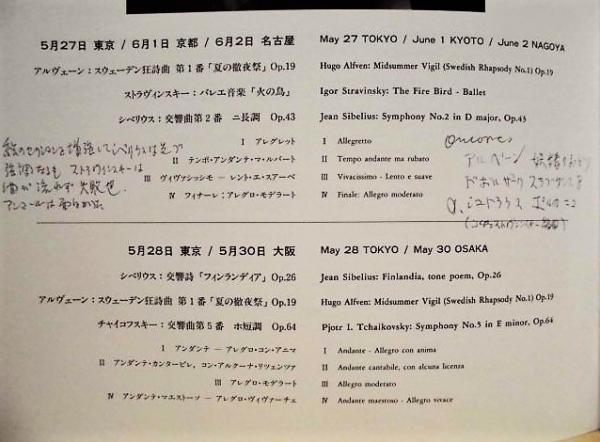 5月27日 東京 / 6月1日 京都 / 6月2日 名古屋
アルヴェーン：スウェーデン狂詩曲 第1番「夏の徹夜祭」Op.19
ストラヴィンスキー：バレエ音楽「火の鳥」
シベリウス：交響曲第2番 ニ長調 Op.43
I アレグレット
II テンポ・アンダンテ・マ・ルバート
III ヴィヴァッシモ － レント・エ・スアーベ
IV フィナーレ：アレグロ・モデラート
May 27 TOKYO / June 1 KYOTO / June 2 NAGOYA
Hugo Alfven: Midsummer Vigil (Swedish Rhapsody No.1) Op.19
Igor Stravinsky: The Fire Bird - Ballet
Jean Sibelius: Symphony No.2 in D major, Op.43
I Allegretto
II Tempo andante ma rubato
III Vivacissimo - Lento e suave
IV Finale: Allegro moderato
encores
アルベーン
ドボルザーク スラブダンス
シュトラウス
5月28日 東京 / 5月30日 大阪
シベリウス：交響詩「フィンランディア」Op.26
アルヴェーン：スウェーデン狂詩曲 第1番「夏の徹夜祭」Op.19
チャイコフスキー：交響曲第5番 ホ短調 Op.64
I アンダンテ － アレグロ・コン・アニマ
II アンダンテ・カンタービレ，コン・アルクーナ・リツェンツァ
III アレグロ・モデラート
IV アンダンテ・マエストーソ － アレグロ・ヴィヴァーチェ
May 28 TOKYO / May 30 OSAKA
Jean Sibelius: Finlandia, tone poem, Op.26
Hugo Alfven: Midsummer Vigil (Swedish Rhapsody No.1) Op.19
Pjotr I. Tchaikovsky: Symphony No.5 in E minor, Op.64
I Andante - Allegro con anima
II Andante cantabile, con alcuna licenza
III Allegro moderato
IV Andante maestoso - Allegro vivace